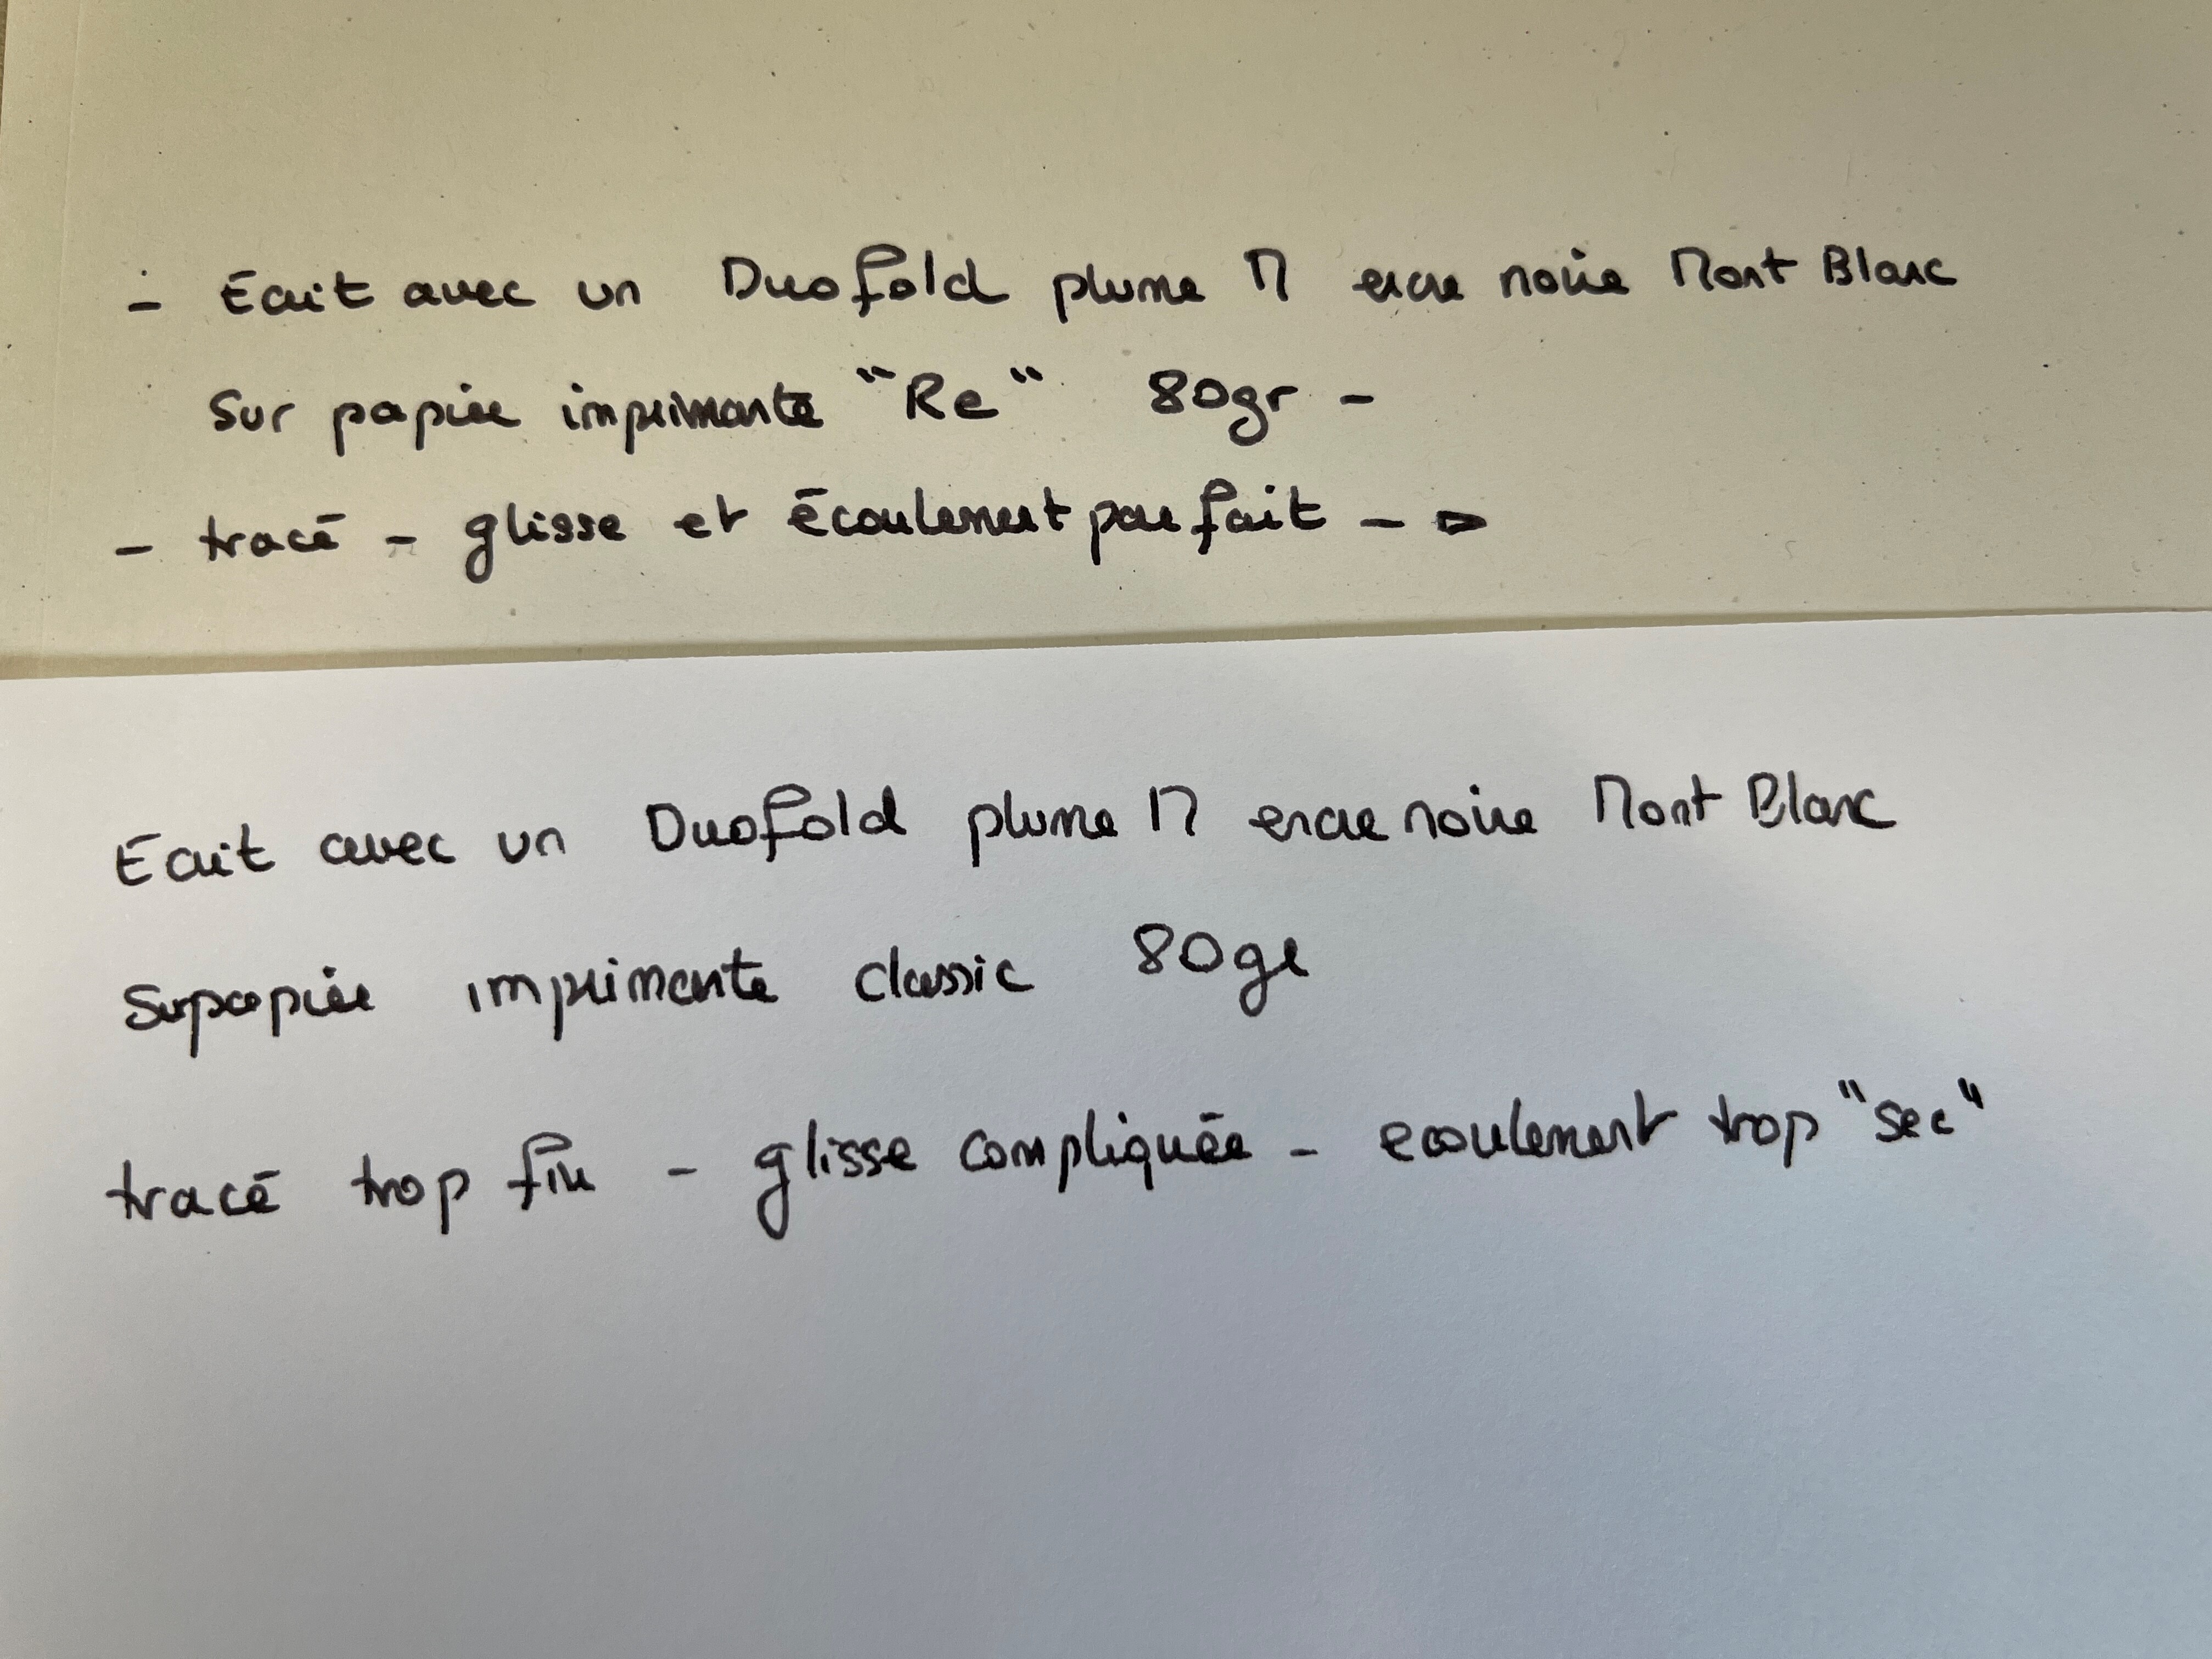 - Ecrit avec un Duofold plume M encre noire Mont Blanc
Sur papier imprimante "Re" 80gr -
- tracé - glisse et écoulement parfait -
Ecrit avec un Duofold plume M encre noire Mont Blanc
Sur papier imprimante classic 80gr
tracé trop fin - glisse compliquée - ecoulement trop "sec"